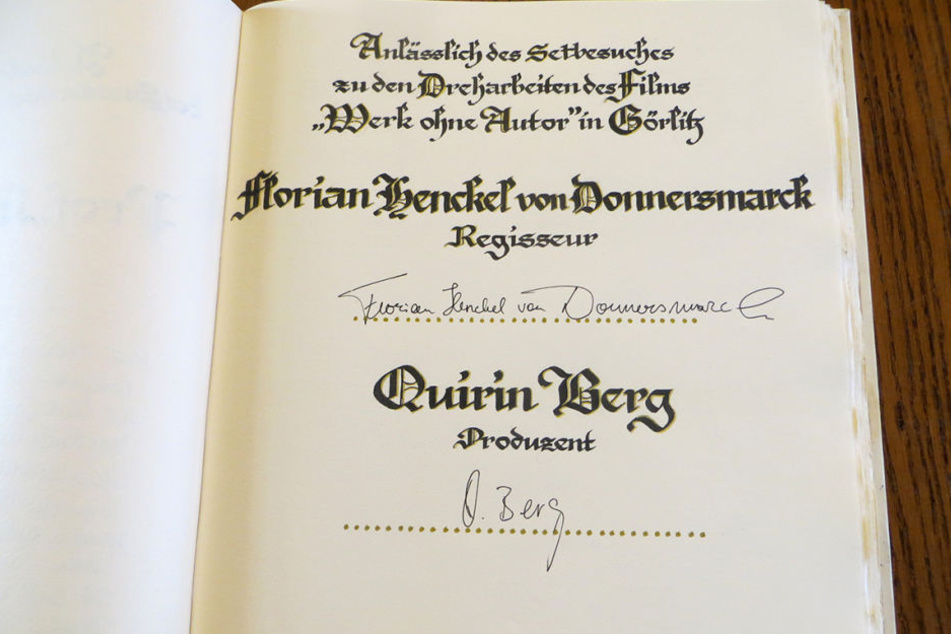 Anlässlich des Setbesuches
zu den Dreharbeiten des Films
„Werk ohne Autor" in Görlitz
Florian Henckel von Donnersmarck
Regisseur
Florian Henckel von Donnersmarck
Quirin Berg
Produzent
Q. Berg